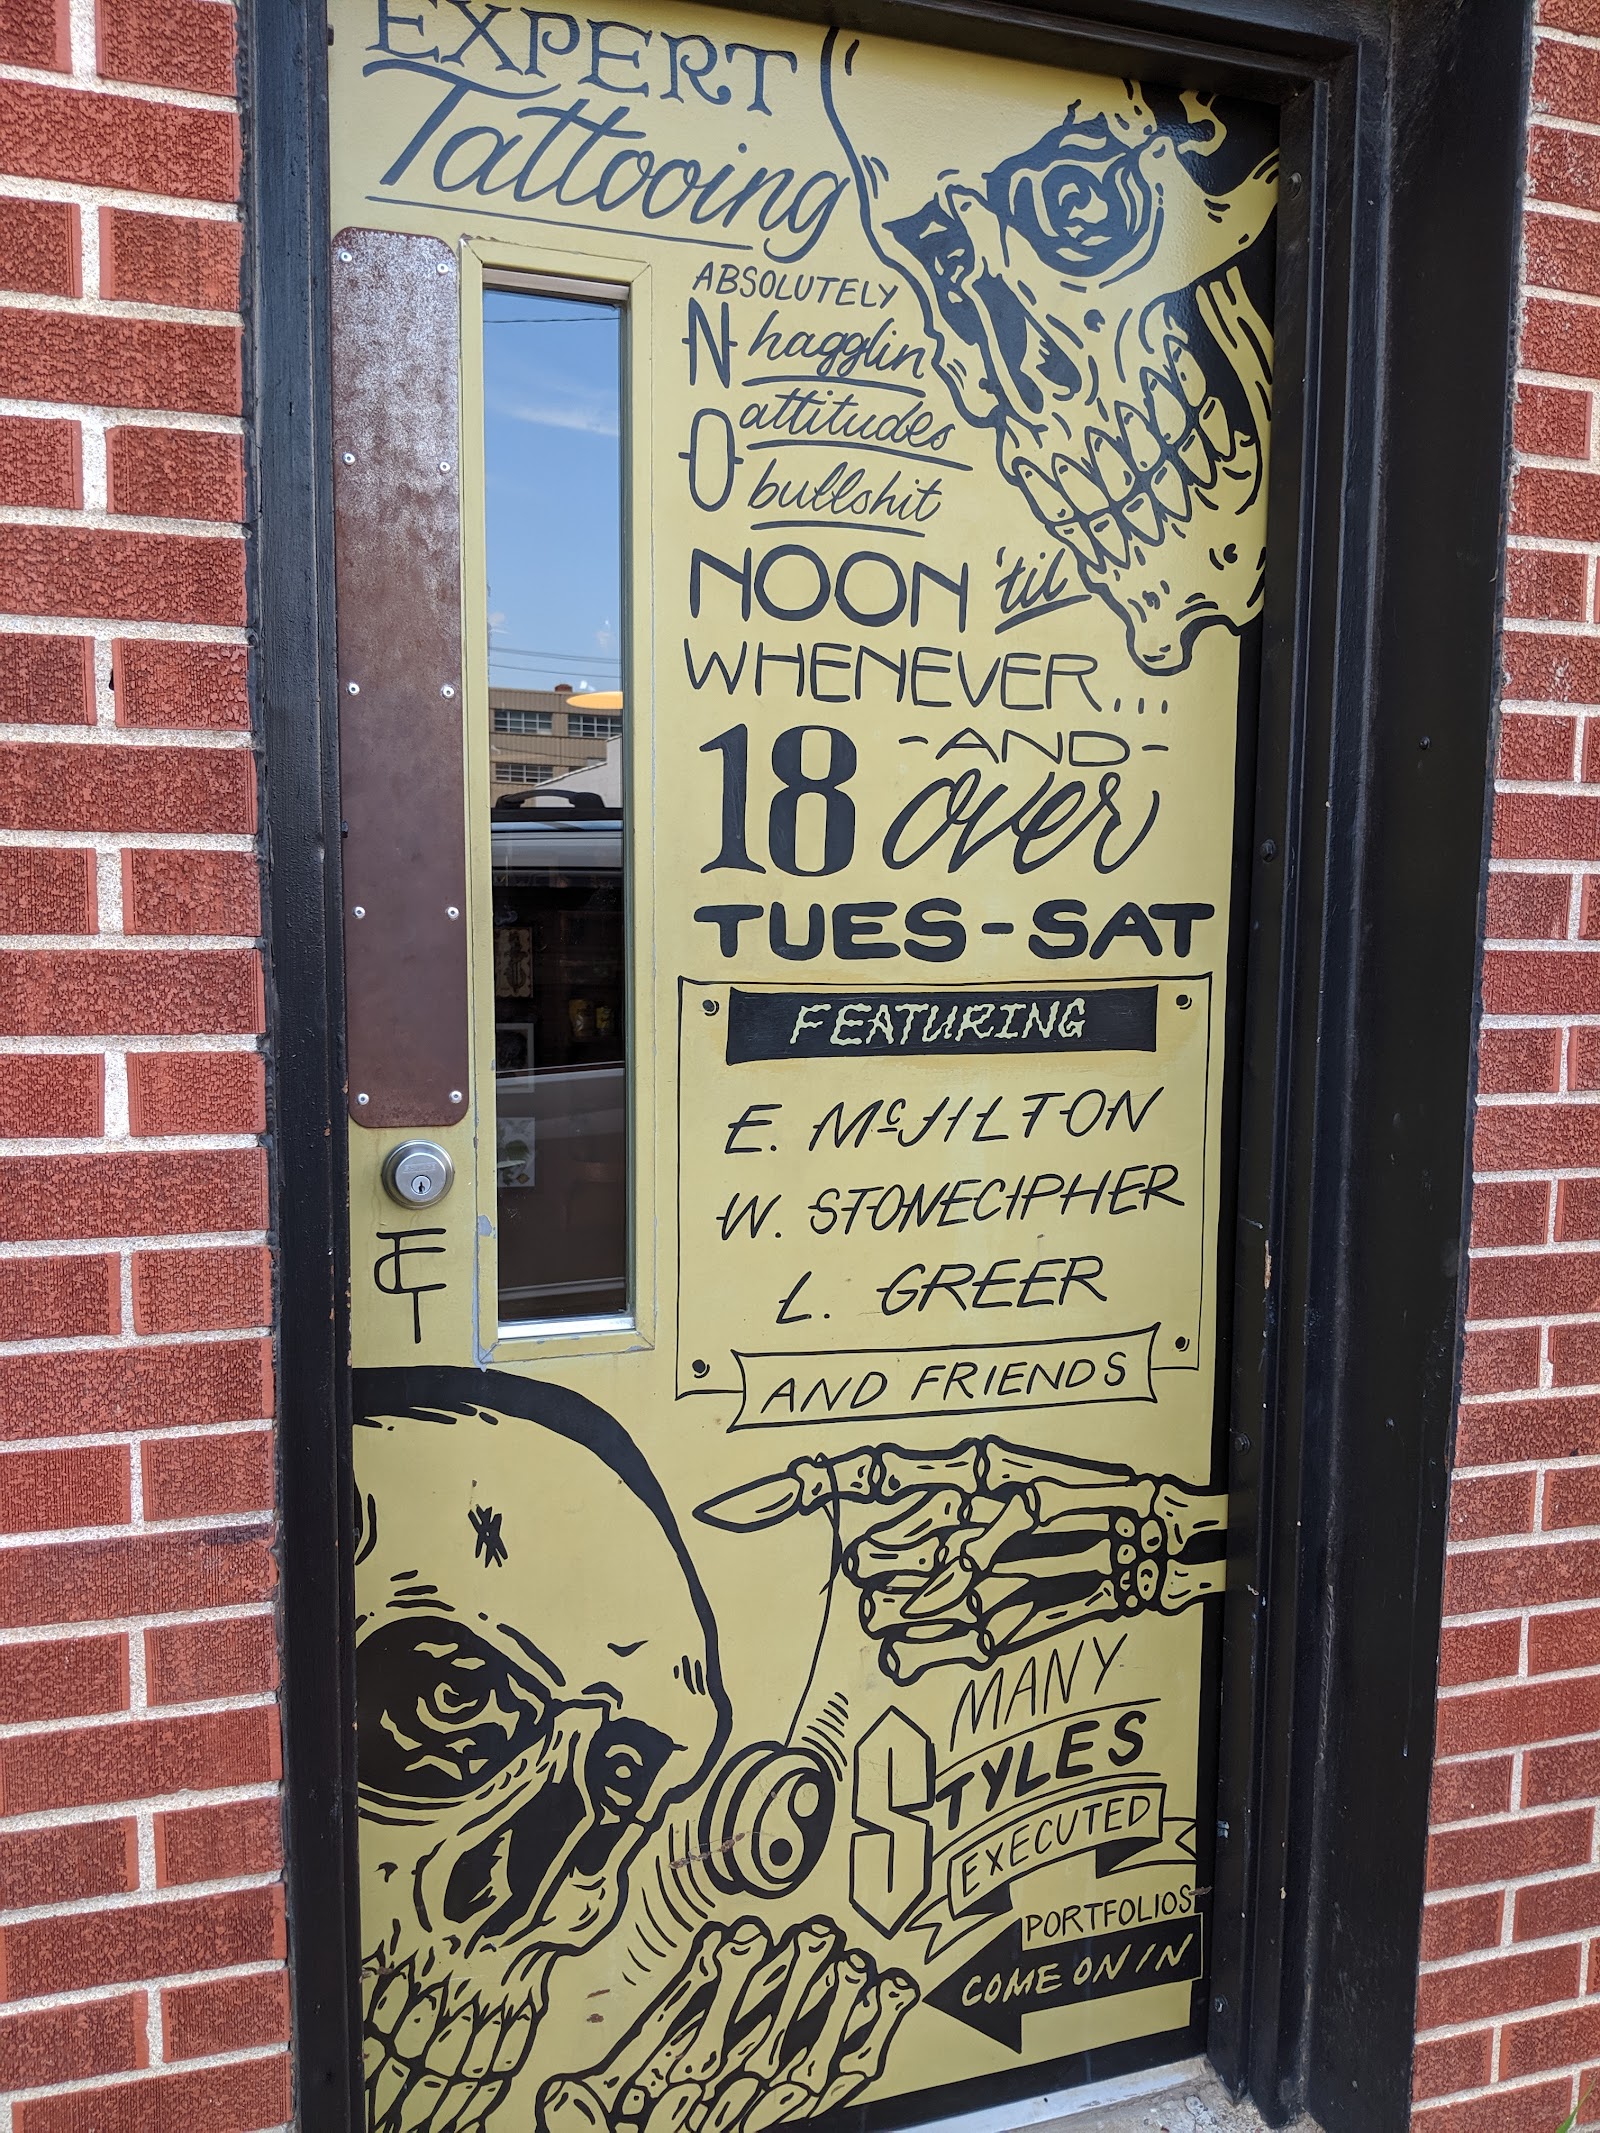 EXPERT
Tattooing
ABSOLUTELY
NO hagglin
attitudes
bullshit
NOON 'til
WHENEVER...
18 -AND- over
TUES-SAT
FEATURING
E. McJILTON
W. STONECIPHER
L. GREER
AND FRIENDS
MANY
STYLES
EXECUTED
PORTFOLIOS
COME ON IN